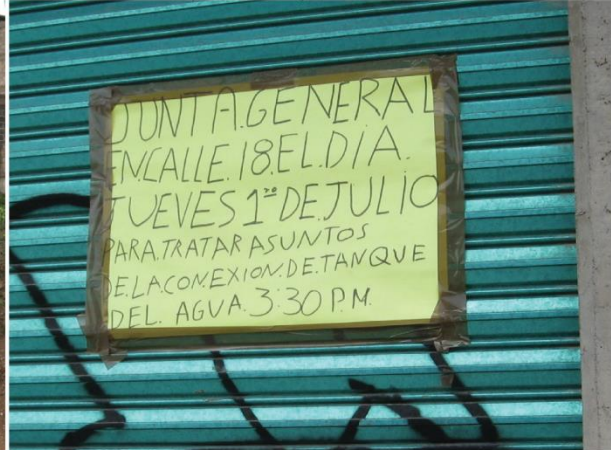 JUNTA.GENERAL
EN.CALLE.18.EL.DIA.
JUEVES 1ro DE.JULIO
PARA.TRATAR ASUNTOS
DE.LA.CONEXION.DE.TANQUE
DEL. AGUA. 3:30 P.M.